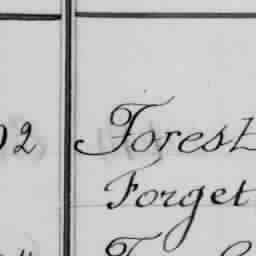 02 Forest
Forget